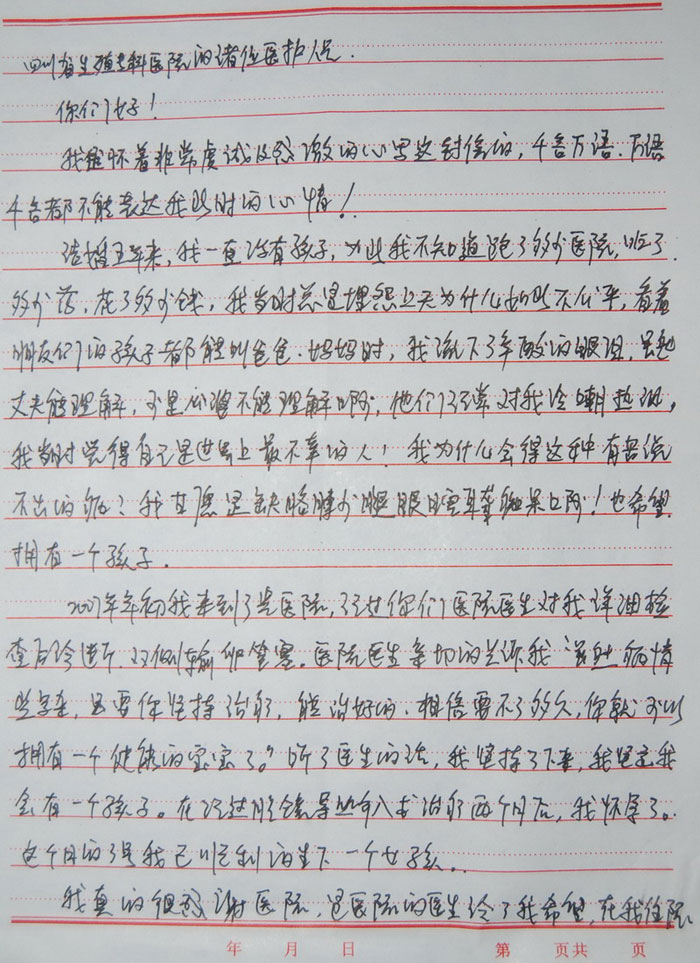 四川省生殖专科医院的诸位医护人员.
你们好！
我是怀着非常虔诚及感激的心写这封信的，千言万语．万语
千言都不能表达我此时的心情！
结婚五年来，我一直没有孩子，为此我不知道跑了多少医院，吃了
多少药．花了多少钱，我当时总是埋怨上天为什么如此不公平，看着
朋友们的孩子都能叫爸爸．妈妈时，我流下了辛酸的眼泪，虽然
丈夫能理解，可是公婆不能理解啊，他们经常对我冷嘲热讽，
我当时觉得自己是世界上最不幸的人！我为什么会得这种有苦说
不出的病？我宁愿是缺胳膊少腿眼瞎耳聋哑巴啊！也希望
拥有一个孩子．
2007年年初我来到了贵医院，经过你们医院医生对我详细检
查后诊断．双侧输卵管塞。医院医生亲切的告诉我"虽然病情
复杂，只要你坚持治疗，能治好的．相信要不了多久，你就可以
拥有一个健康的宝宝了。"听了医生的话，我坚持了下来，我坚定我
会有一个孩子。在经过腔镜导丝介入术治疗两个月后，我怀孕了。
这个月的3号我已顺利的生下一个女孩．
我真的很感谢医院，是医院的医生给了我希望，在我住院
年 月 日 第 页共 页